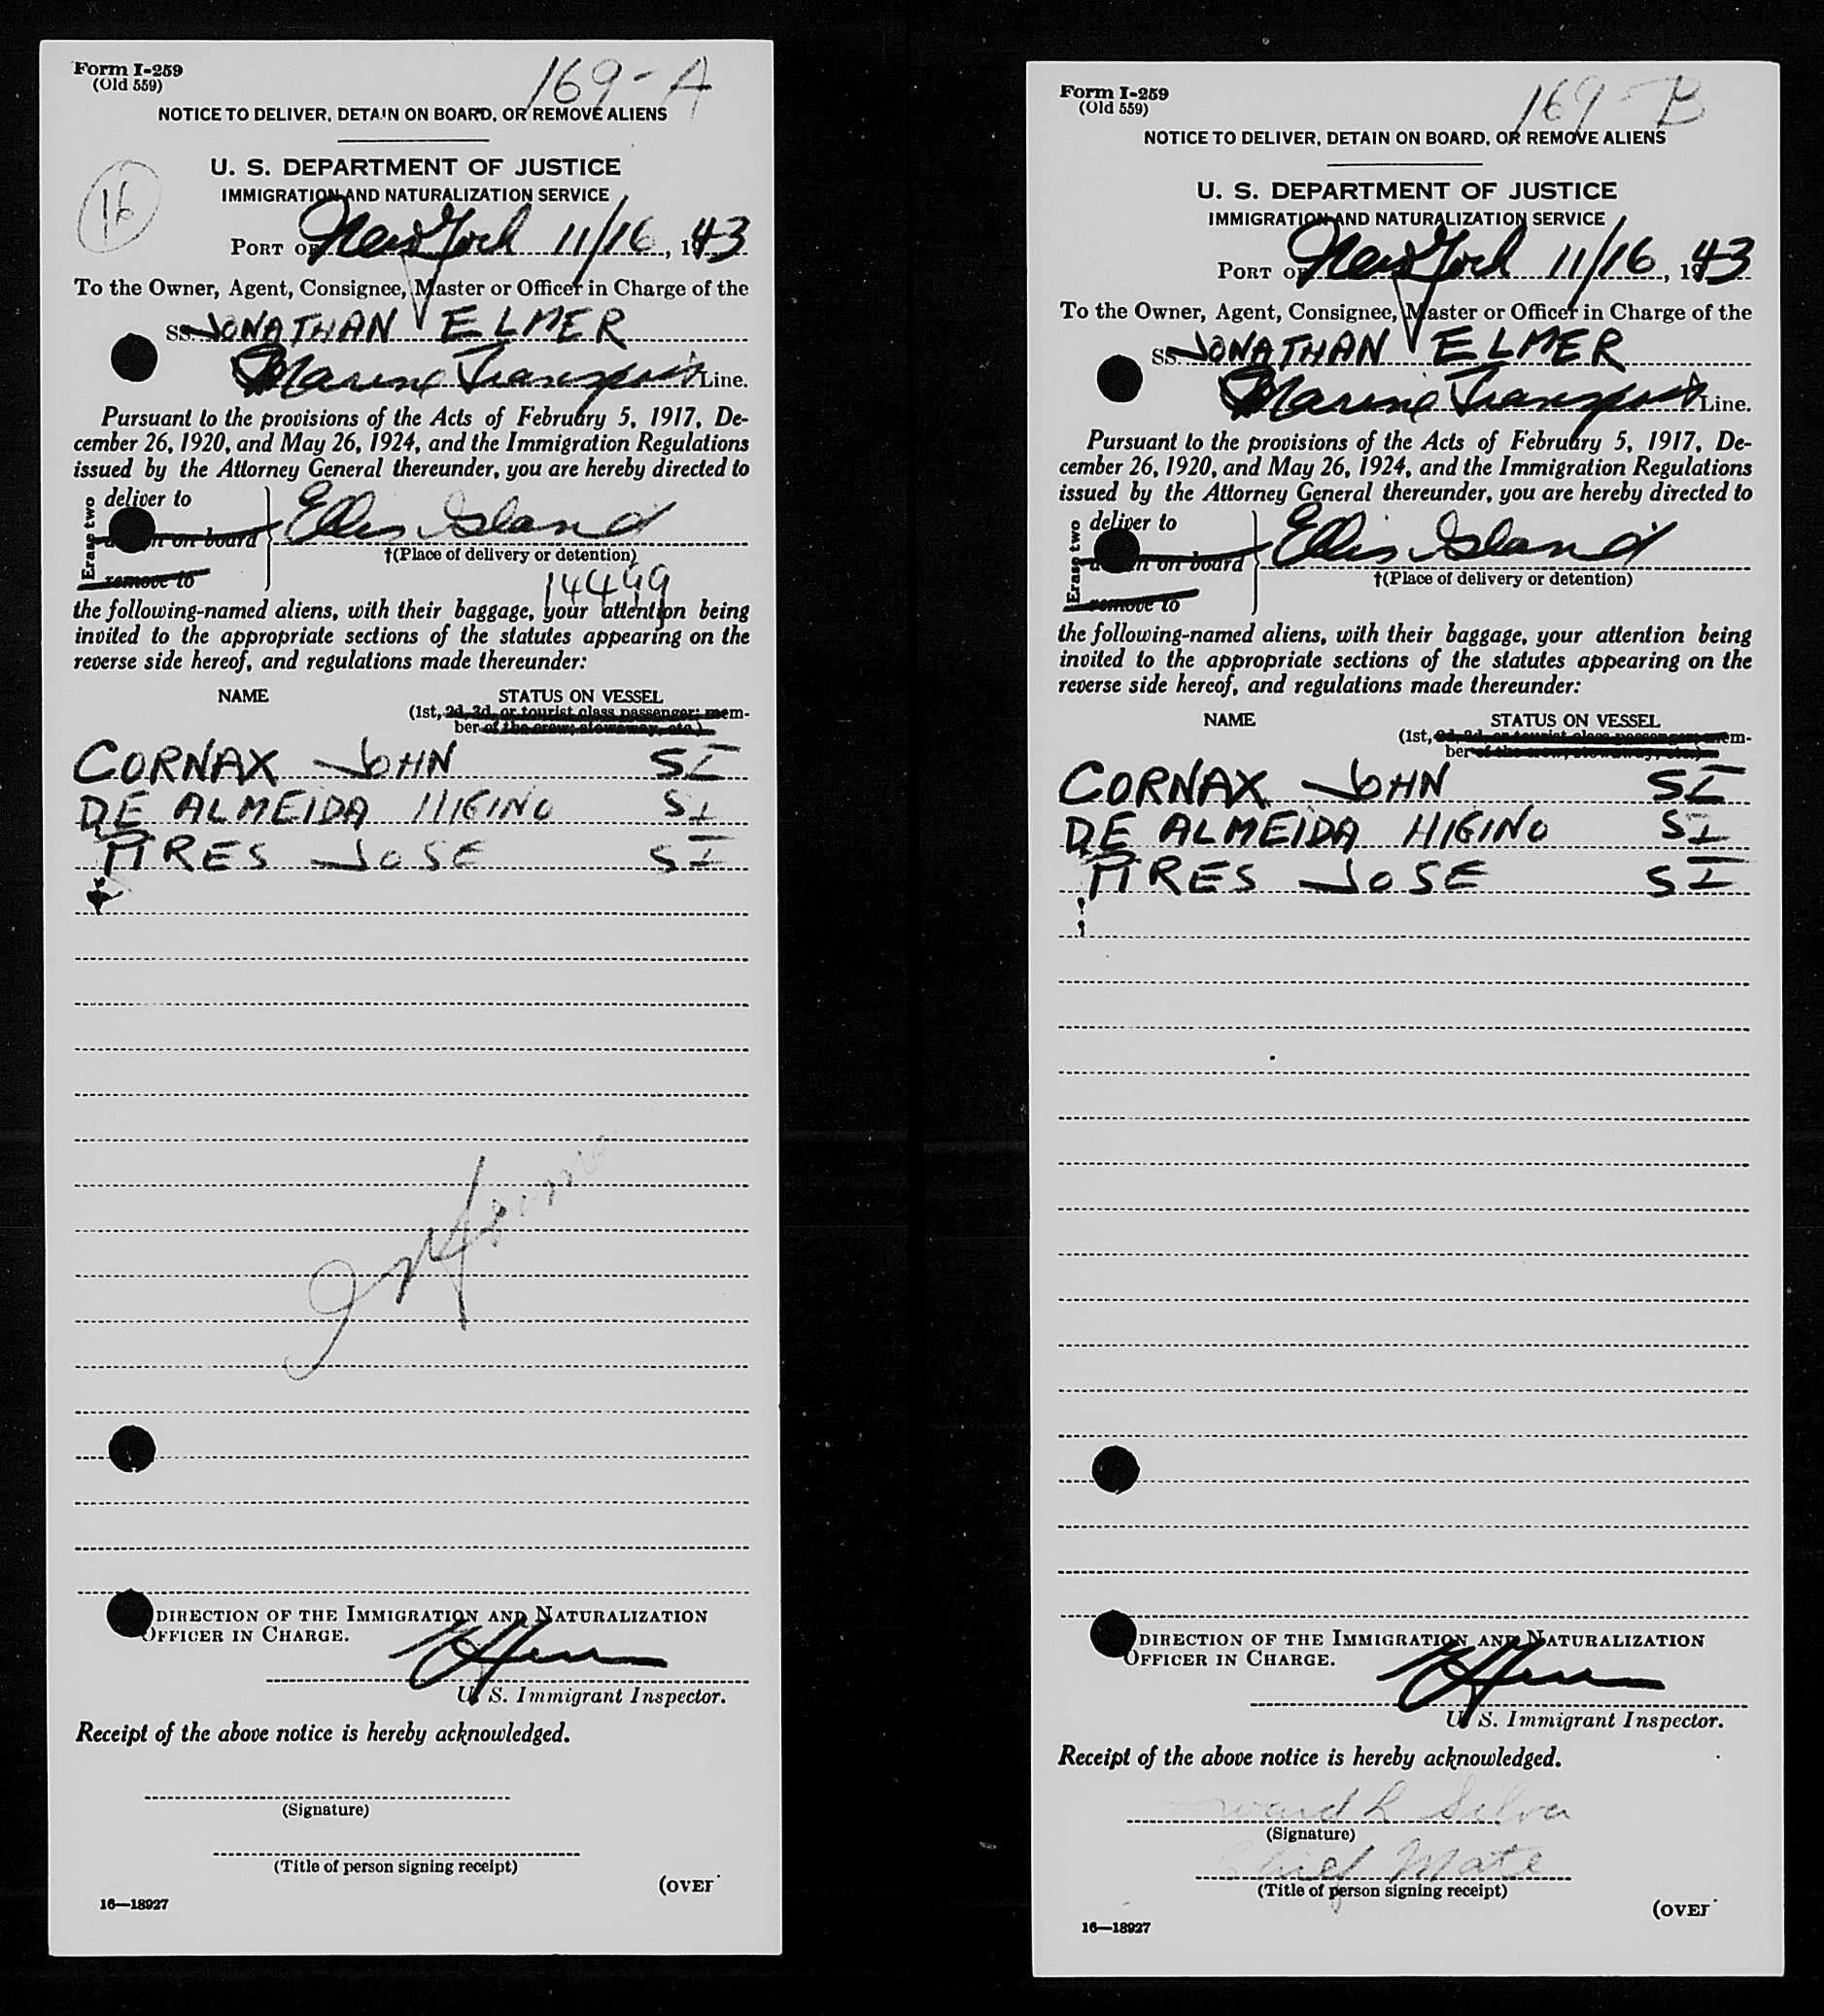 Form I-259
(Old 559)
169-A
NOTICE TO DELIVER, DETAIN ON BOARD, OR REMOVE ALIENS
U. S. DEPARTMENT OF JUSTICE
IMMIGRATION AND NATURALIZATION SERVICE
16
PORT OF New York 11/16, 1943
To the Owner, Agent, Consignee, Master or Officer in Charge of the
SS. JONATHAN ELMER
Marine Transport Line.
Pursuant to the provisions of the Acts of February 5, 1917, De-
cember 26, 1920, and May 26, 1924, and the Immigration Regulations
issued by the Attorney General thereunder, you are hereby directed to
Erase two
deliver to
on board
remove to
Ellis Island
†(Place of delivery or detention)
14499
the following-named aliens, with their baggage, your attention being
invited to the appropriate sections of the statutes appearing on the
reverse side hereof, and regulations made thereunder:
NAME STATUS ON VESSEL
(1st, 2d, 3d, or tourist class passenger; mem-
ber of the crew; stowaway, etc.)
CORNAX JOHN SI
DE ALMEIDA HIGINO SI
PIRES JOSE SI
DIRECTION OF THE IMMIGRATION AND NATURALIZATION
OFFICER IN CHARGE.
U. S. Immigrant Inspector.
Receipt of the above notice is hereby acknowledged.
(Signature)
(Title of person signing receipt)
(OVER
16—18927
Form I-259
(Old 559)
169-B
NOTICE TO DELIVER, DETAIN ON BOARD, OR REMOVE ALIENS
U. S. DEPARTMENT OF JUSTICE
IMMIGRATION AND NATURALIZATION SERVICE
PORT OF New York 11/16, 1943
To the Owner, Agent, Consignee, Master or Officer in Charge of the
SS. JONATHAN ELMER
Marine Transport Line.
Pursuant to the provisions of the Acts of February 5, 1917, De-
cember 26, 1920, and May 26, 1924, and the Immigration Regulations
issued by the Attorney General thereunder, you are hereby directed to
Erase two
deliver to
on board
remove to
Ellis Island
†(Place of delivery or detention)
the following-named aliens, with their baggage, your attention being
invited to the appropriate sections of the statutes appearing on the
reverse side hereof, and regulations made thereunder:
NAME STATUS ON VESSEL
(1st, 2d, 3d, or tourist class passenger; mem-
ber of the crew; stowaway, etc.)
CORNAX JOHN SI
DE ALMEIDA HIGINO SI
PIRES JOSE SI
DIRECTION OF THE IMMIGRATION AND NATURALIZATION
OFFICER IN CHARGE.
U. S. Immigrant Inspector.
Receipt of the above notice is hereby acknowledged.
Silva
(Signature)
Chief Mate
(Title of person signing receipt)
(OVER
16—18927